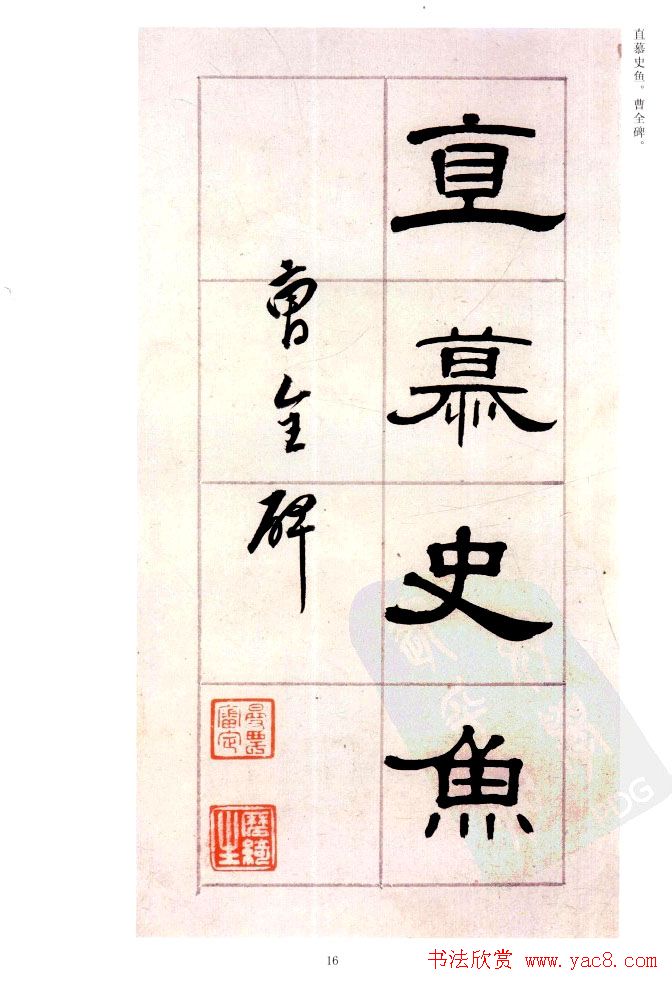 直慕史鱼。曹全碑。
直慕史魚
曹全碑
16
书法欣赏 www.yac8.com